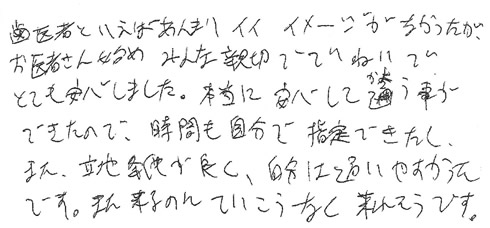 歯医者といえばあんまりイイ イメージがなかったが、
お医者さん始め みんな親切でていねいで
とても安心しました。本当に安心して通う事が
できたので、時間も自分で指定できたし、
また、立地条件が良く、自分は通いやすかった
です。また来るのにていこうなく 来れそうです。